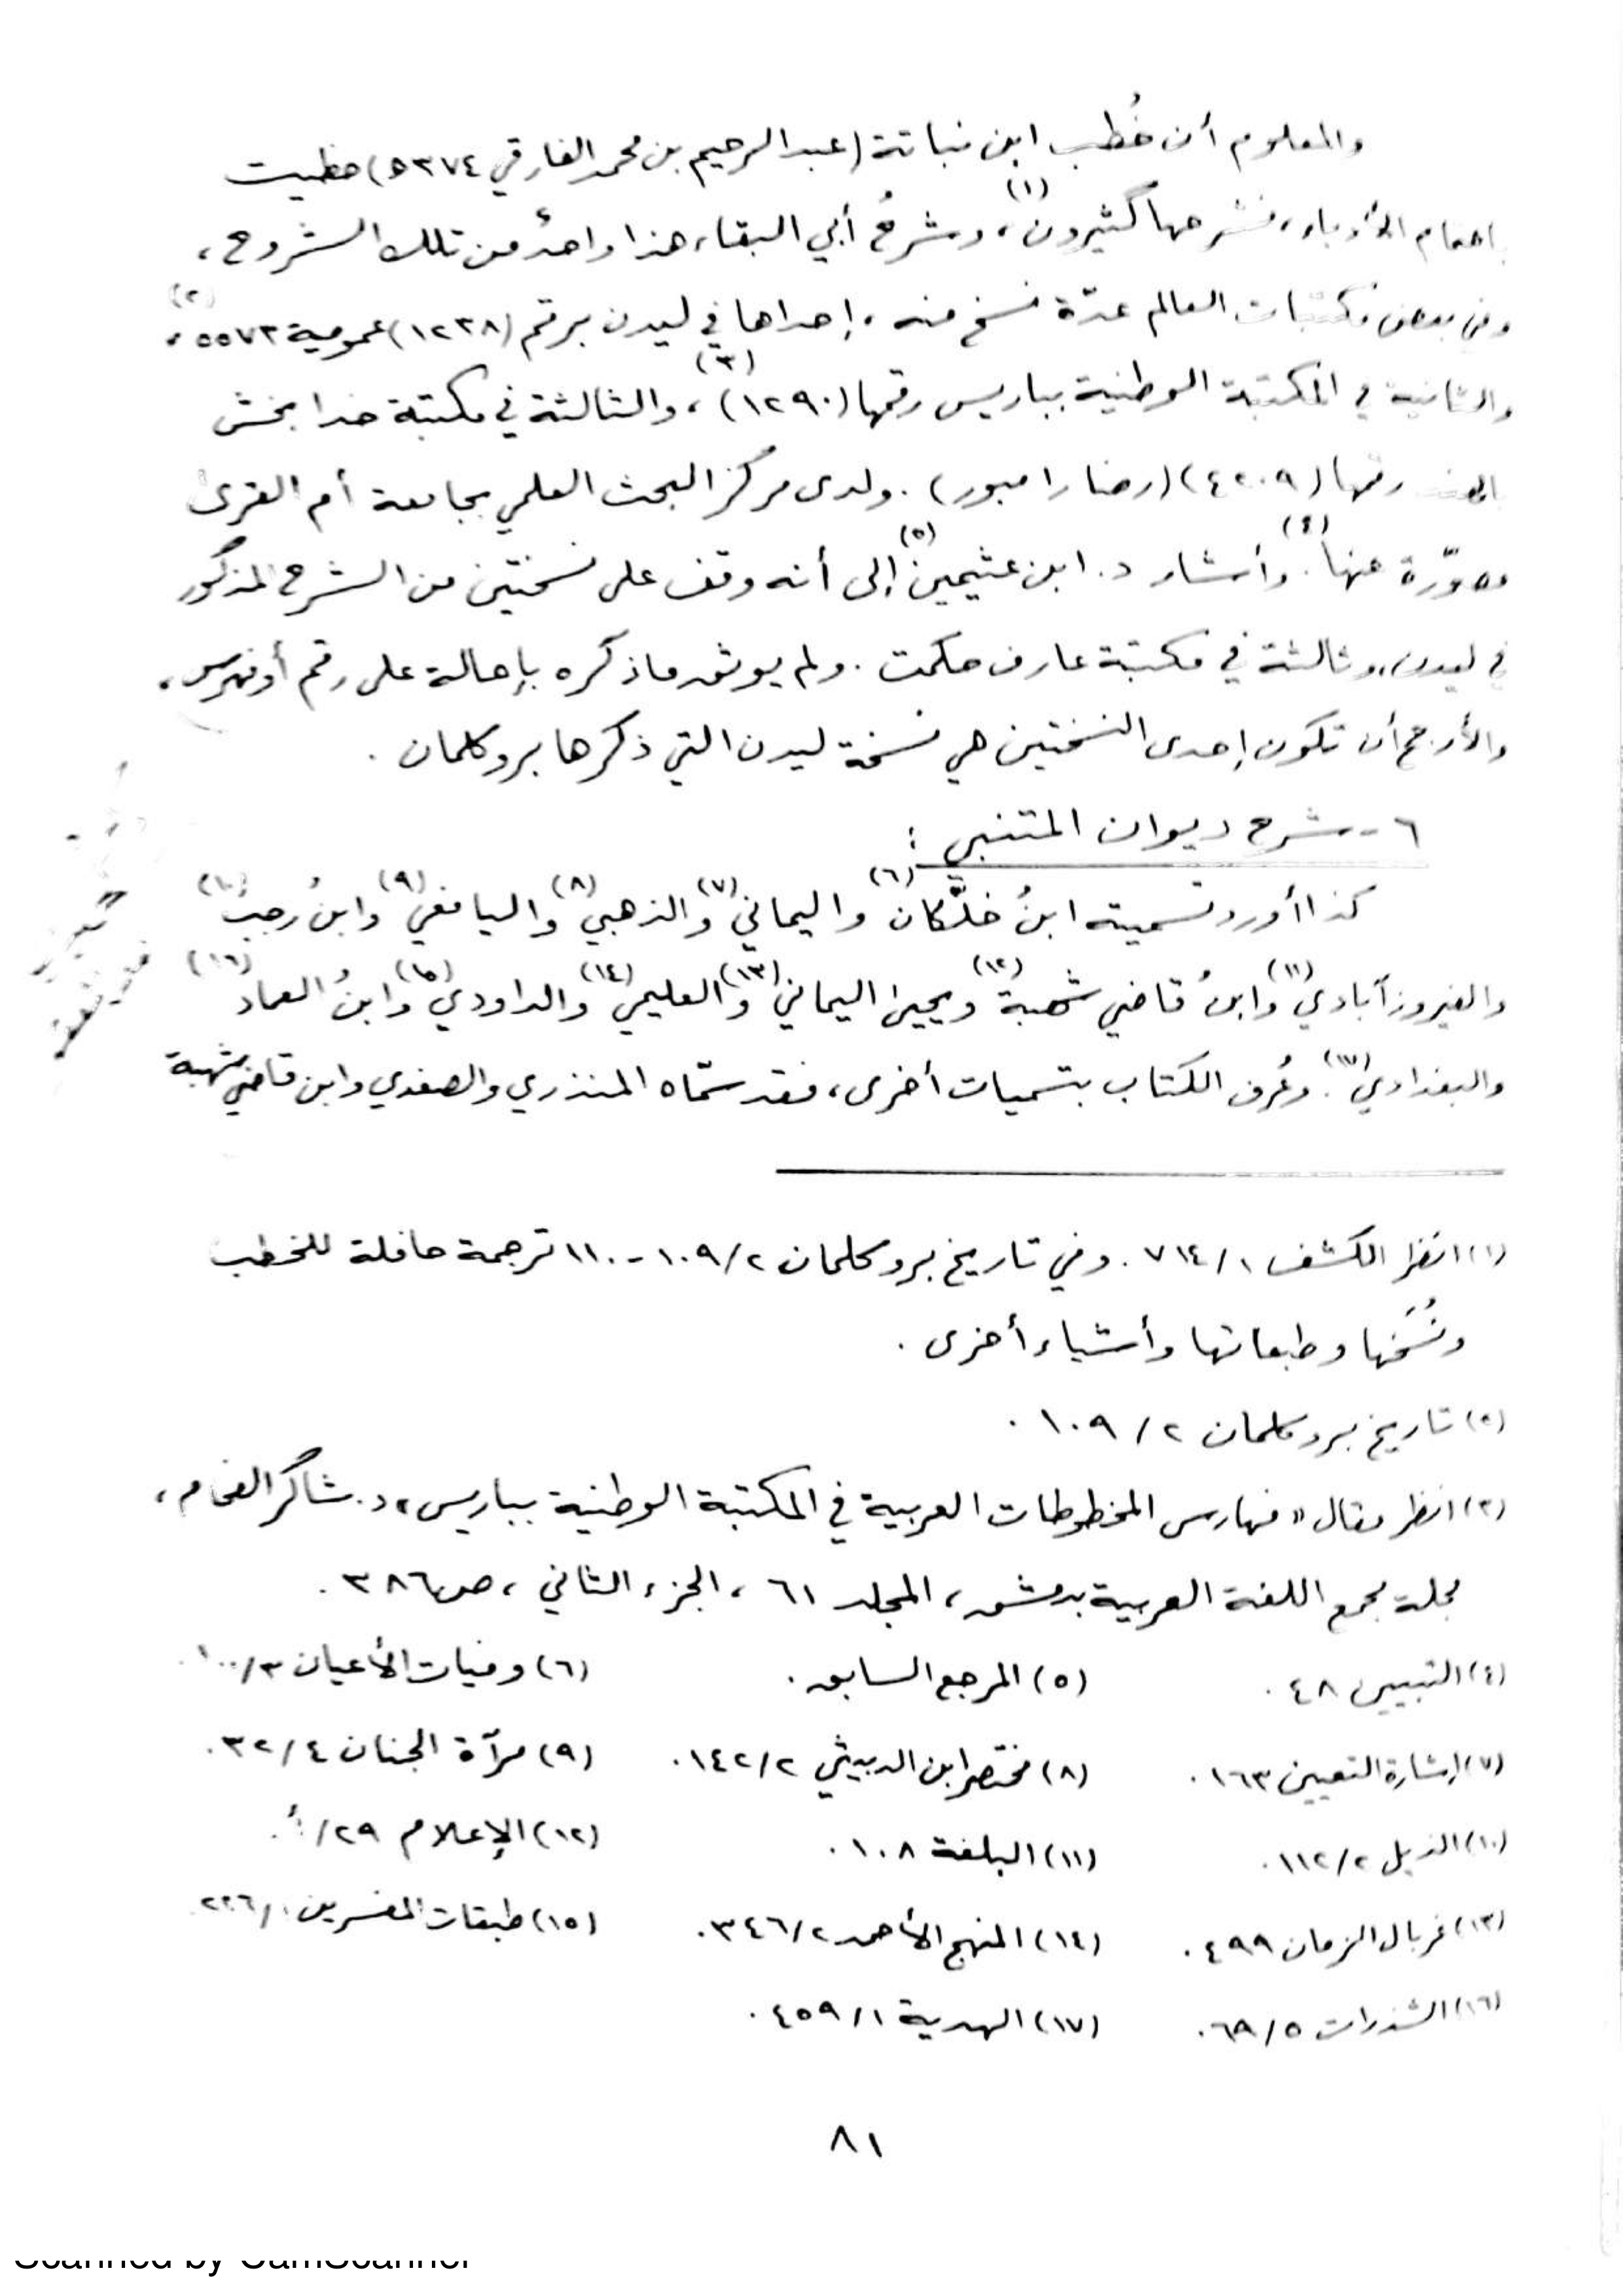 والمعلوم أن خُطب ابن نباتة (عبد الرحيم بن محمد الفارقي ٣٧٤ه) حظيت
باهتمام الأدباء، فشرحها كثيرون(١)، وشرحُ أبي البقاء هذا واحدٌ من تلك الشروح،
وفي بعض مكتبات العالم عدّة نسخ منه، إحداها في ليدن برقم (١٢٣٨) عمومية ٥٥٧٣(٢)،
والثانية في المكتبة الوطنية بباريس رقمها (١٢٩٠)(٣)، والثالثة في مكتبة خدا بخش
بالهند رقمها (٤٢٠٩) (رضا رامبور). ولدى مركز البحث العلمي بجامعة أم القرى
مصوّرة عنها(٤). وأشار د. ابن عثيمين(٥) إلى أنه وقف على نسختين من الشرح المذكور
في ليدن، وثالثة في مكتبة عارف حكمت. ولم يوثق ما ذكره بإحالة على رقم أو فهرس،
والأرجح أن تكون إحدى النسختين هي نسخة ليدن التي ذكرها بروكلمان.
٦- شرح ديوان المتنبي:
كذا أورد تسميته ابنُ خلّكان(٦) واليماني(٧) والذهبي(٨) واليافعي(٩) وابنُ رجب(١٠)
والفيروزآبادي(١١) وابنُ قاضي شهبة(١٢) ويحيى اليماني(١٣) والعليمي(١٤) والداودي(١٥) وابنُ العماد(١٦)
والبغدادي(١٧). وعُرف الكتاب بتسميات أخرى، فقد سمّاه المنذري والصفدي وابن قاضي شهبة
(١) انظر الكشف ٧١٤/١. وفي تاريخ بروكلمان ١٠٩/٢-١١٠ ترجمة حافلة للخطب
ونُسَخها وطبعاتها وأشياء أخرى.
(٢) تاريخ بروكلمان ١٠٩/٢.
(٣) انظر مقال «فهارس المخطوطات العربية في المكتبة الوطنية بباريس» د. شاكر الفحام،
مجلة مجمع اللغة العربية بدمشق، المجلد ٦١، الجزء الثاني، ص ٣٨٦.
(٤) التبيين ٤٨. (٥) المرجع السابق. (٦) وفيات الأعيان ١٠٠/٣.
(٧) إشارة التعيين ١٦٣. (٨) مختصر ابن الدبيثي ١٤٢/٢. (٩) مرآة الجنان ٣٢/٤.
(١٠) الذيل ١١٢/٢. (١١) البلغة ١٠٨. (١٢) الإعلام ٢٩/أ.
(١٣) غربال الزمان ٤٩٩. (١٤) المنهج الأحمد ٣٤٦/٢. (١٥) طبقات المفسرين ٢٢٦/١.
(١٦) الشذرات ٦٩/٥. (١٧) الهدية ٤٥٩/١.
٨١
Scanned by CamScanner